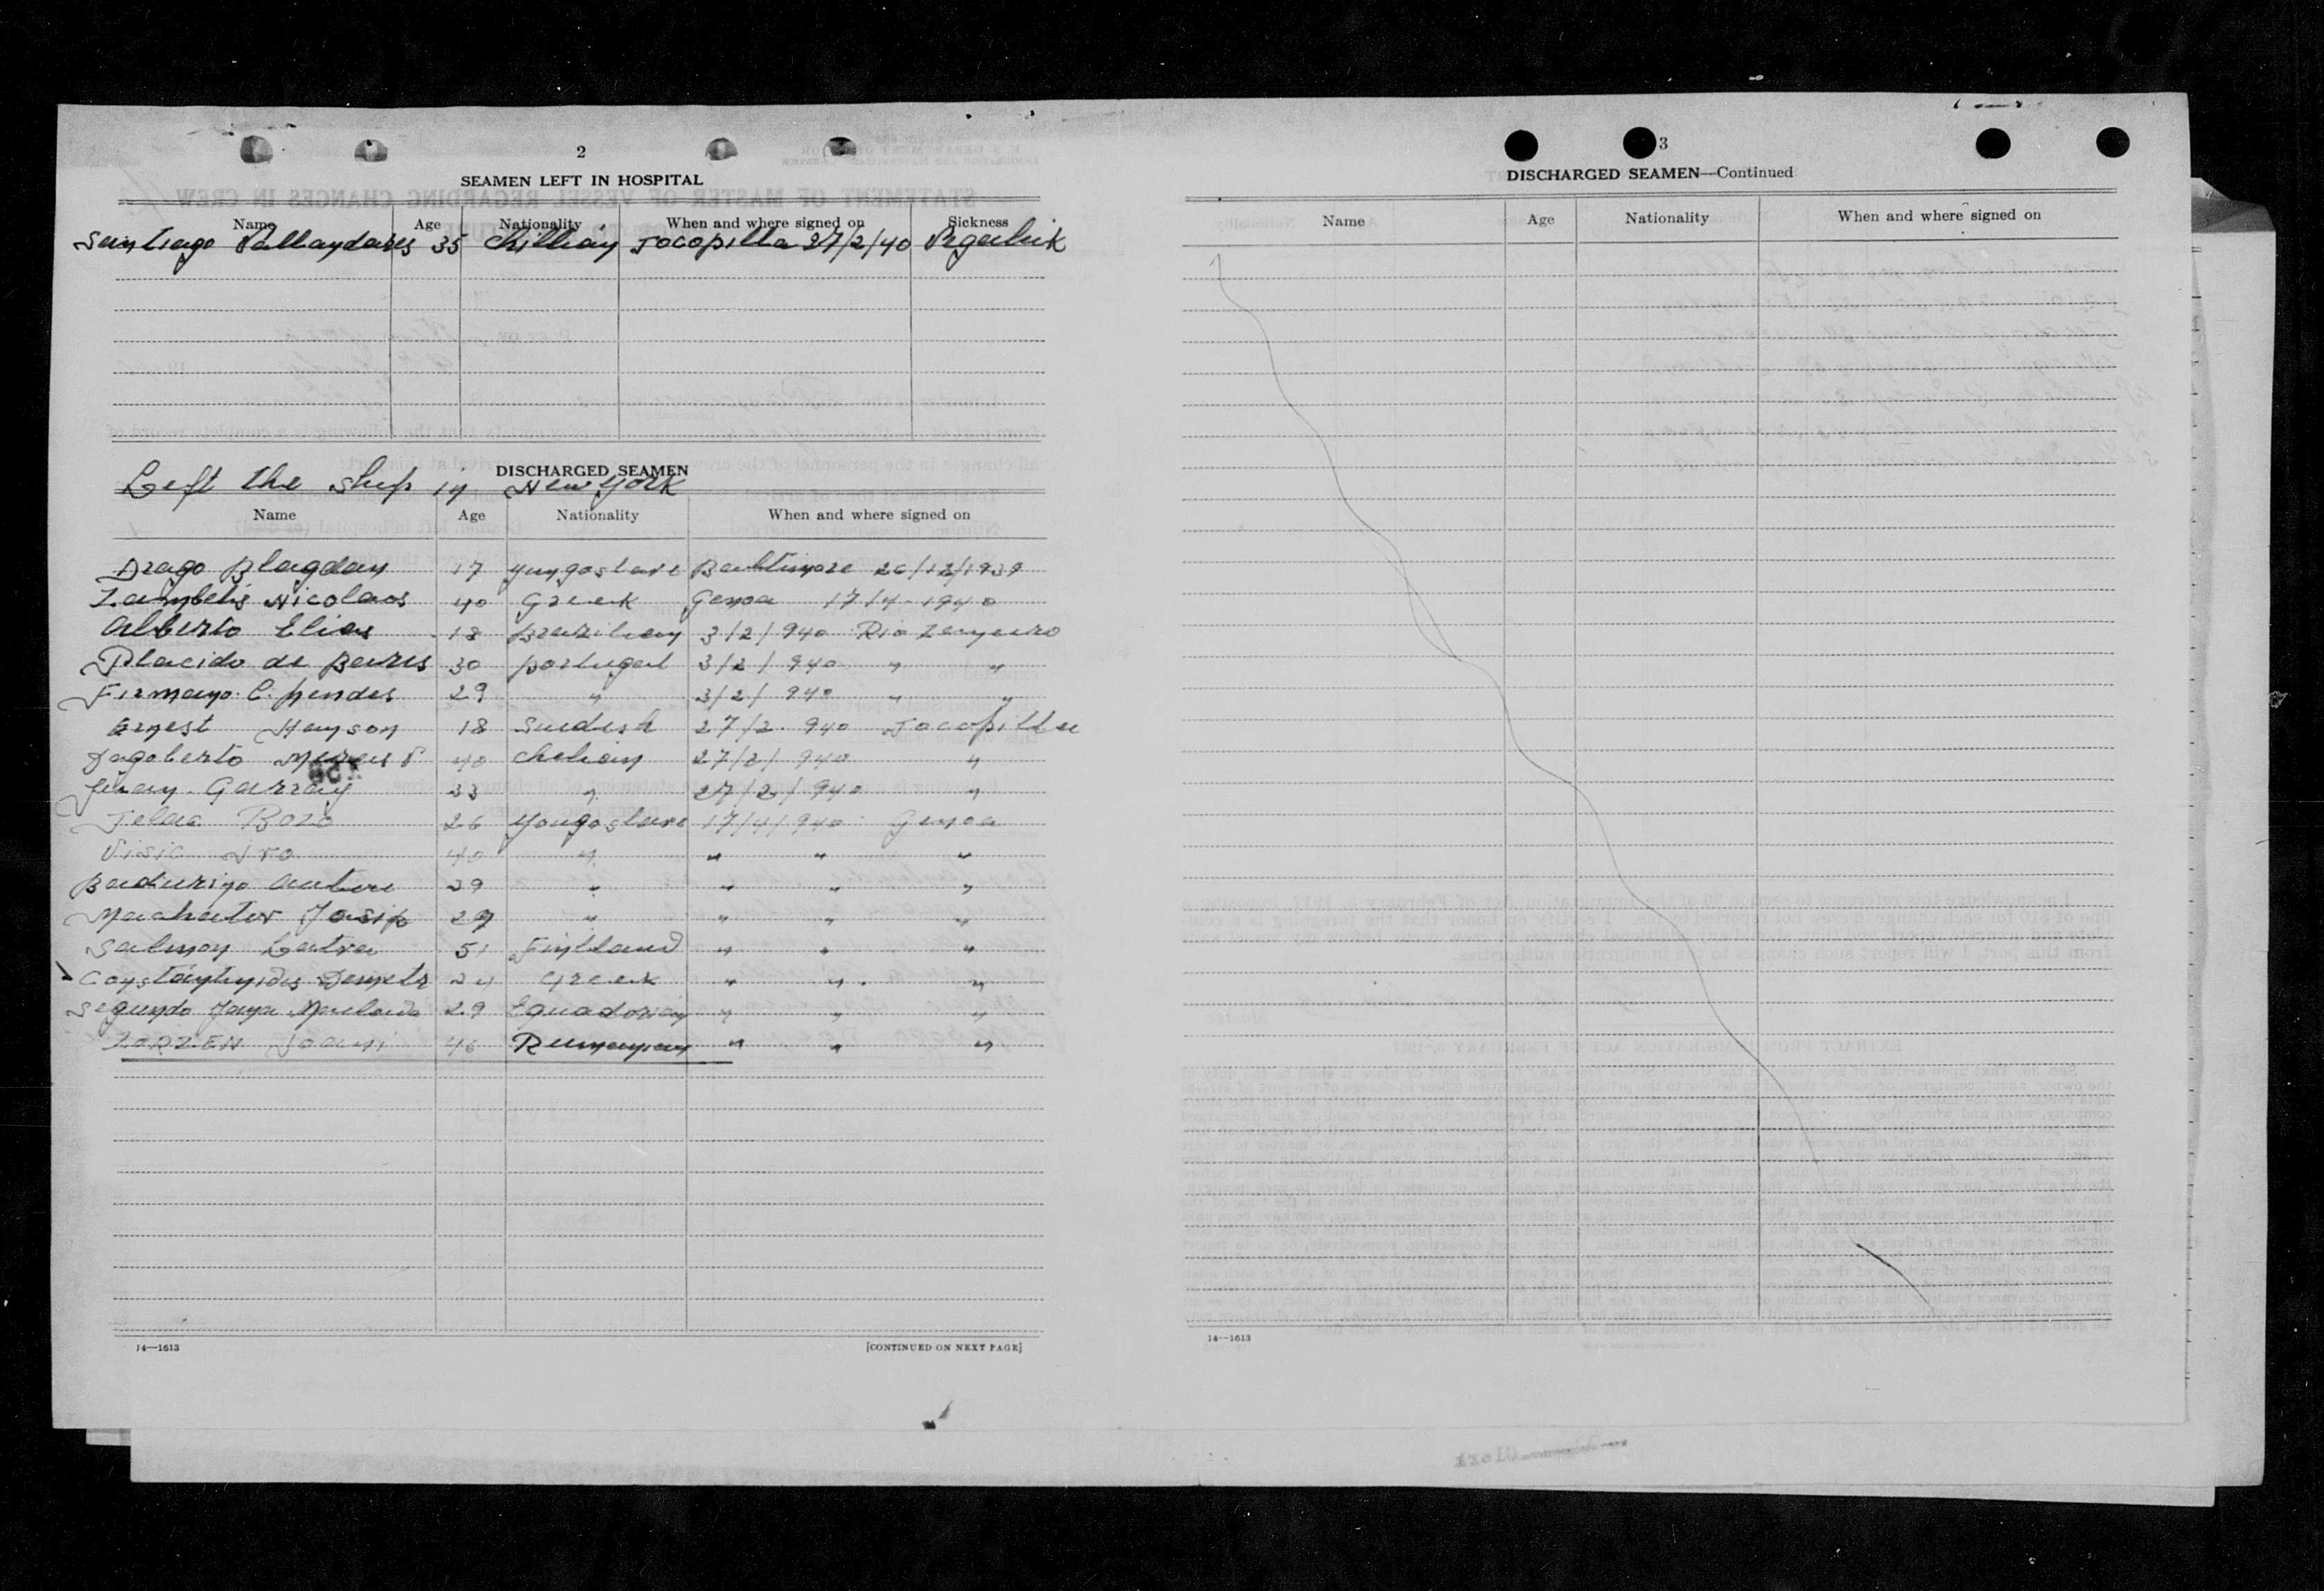 2
SEAMEN LEFT IN HOSPITAL
Name Age Nationality When and where signed on Sickness
Santiago 35 Chilian Tocopilla 27/2/40
DISCHARGED SEAMEN
Left the ship in New York
Name Age Nationality When and where signed on
Drago Blagdan 17 Yungoslave Baltimore 26/12/1939
Zambelis Nicolaos 40 Greek Genoa 17/4-1940
Alberto Elias 18 Brazilian 3/2/940 Rio Zaneiro
Placido de 30 Portugal 3/2/940 " "
Firmano C. Mendes 29 " 3/2/940 " "
Ernest Hanson 18 Suedish 27/2.940 Tocopilla
Dagoberto 40 Chelian 27/2/940 "
Juan Garray 33 " 27/2/940 "
Jelac Bozo 26 Yougoslave 17/4/940 Genoa
Visic Ivo 40 " " " "
29 " " " "
Josip 29 " " " "
Salmon 51 Finlland " " "
Demetr 24 Greek " " "
Segundo 29 Equadorian " " "
ZORZEN Joani 46 Rumanian " " "
14—1613
[CONTINUED ON NEXT PAGE]
3
DISCHARGED SEAMEN—Continued
Name Age Nationality When and where signed on
14—1613